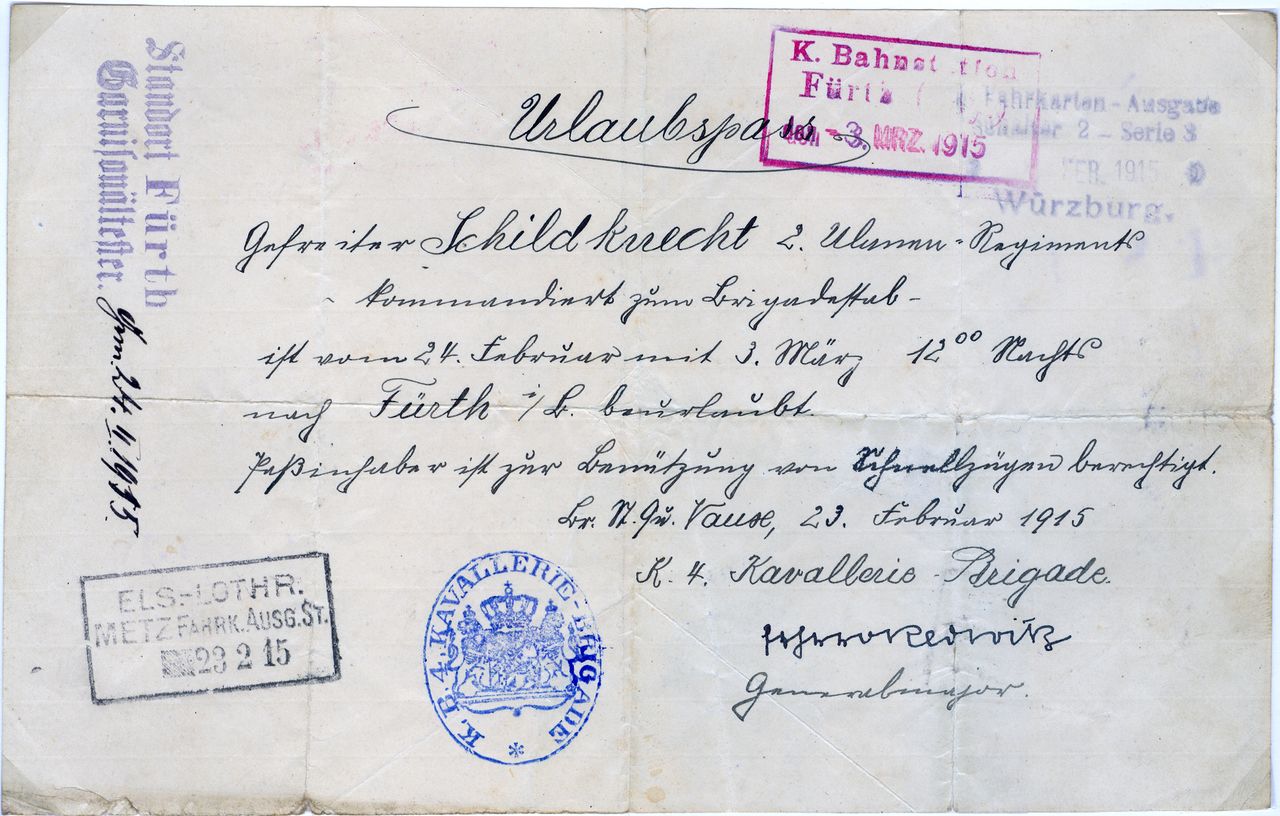 Urlaubspass
K. Bahnstation
Fürth
den - 3. MRZ. 1915
Fahrkarten - Ausgabe
Schalter 2 - Serie 3
FEB. 1915
Würzburg.
Standort Fürth
Garnisonältester.
24. 4. 1915.
Gefreiter Schildknecht 2. Ulanen-Regiments
- kommandiert zum Brigadestab -
ist vom 24. Februar mit 3. März 12⁰⁰ Nachts
nach Fürth i/B. beurlaubt.
Paßinhaber ist zur Benützung von Schnellzügen berechtigt.
Br. St. Qu. Vaux, 23. Februar 1915
K. 4. Kavallerie-Brigade.
Generalmajor.
ELS.-LOTHR.
METZ FAHRK. AUSG. ST.
23 2 15
K. B. 4. KAVALLERIE-BRIGADE